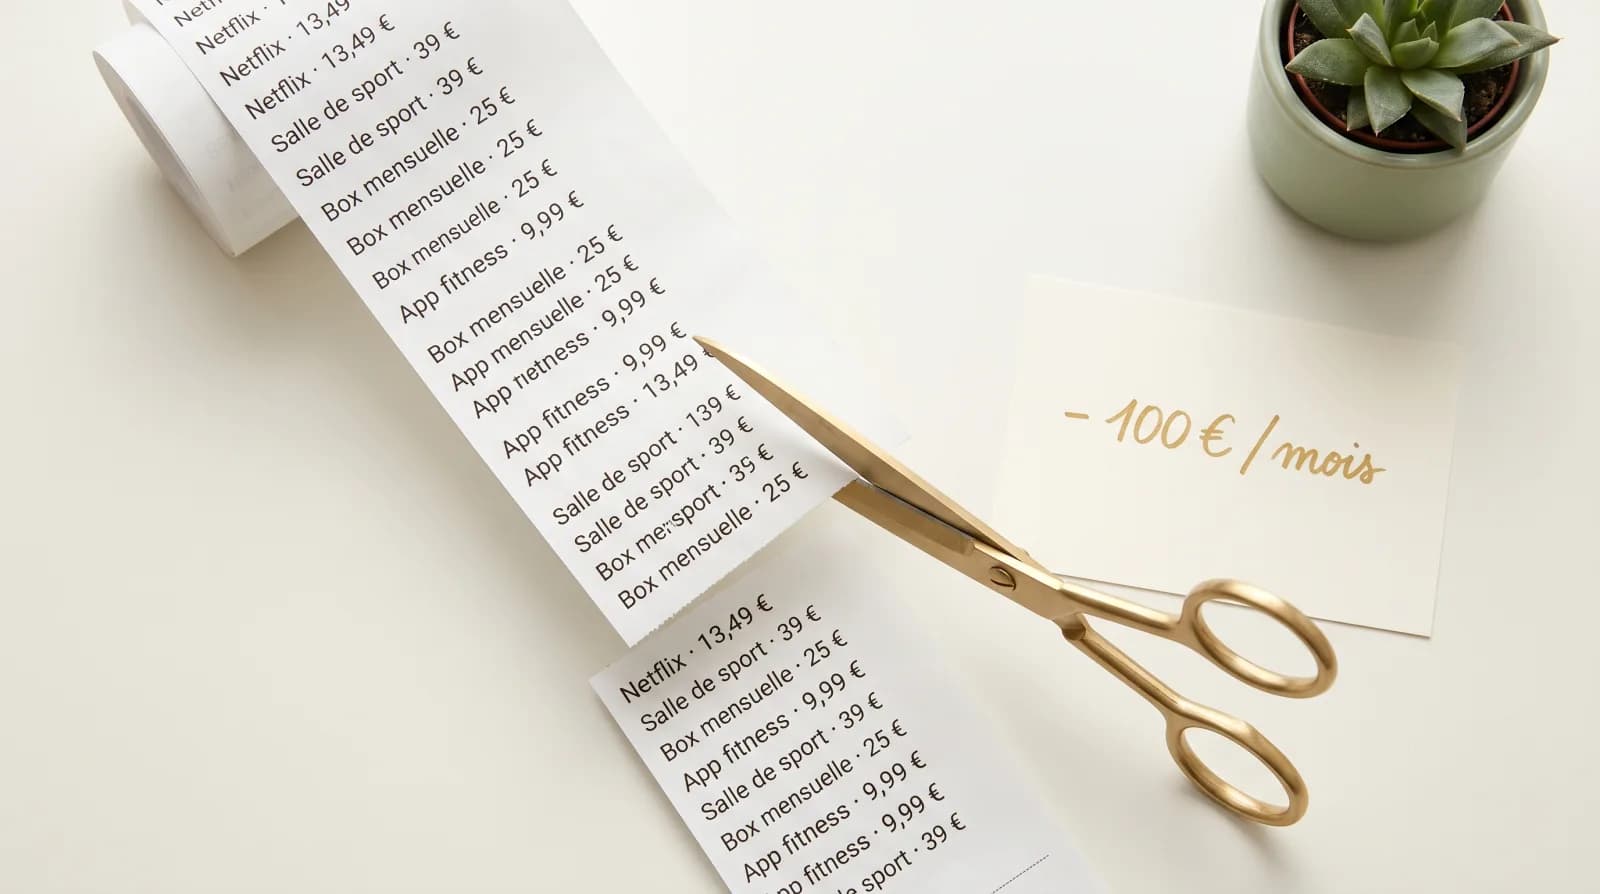 Netflix ·
Netflix · 13,49
Netflix · 13,49 €
Salle de sport · 39 €
Salle de sport · 39 €
Box mensuelle · 25 €
Box mensuelle · 25 €
Box mensuelle · 25 €
App fitness · 9,99 €
Box mensuelle · 25 €
App mensuelle · 25 €
App rietness · 9,99 €
App fitness · 9,99 €
App fitness · 13,49 €
Salle de sport · 139 €
Salle de sport · 39 €
Box mensport · 39 €
Box mensuelle · 25 €
Netflix · 13,49 €
Salle de sport · 39 €
Box mensuelle · 25 €
App fitness · 9,99 €
Salle de sport · 39 €
Box mensuelle · 25 €
App fitness · 9,99 €
fitness · 9,99 €
sport · 39 €
- 100 € / mois